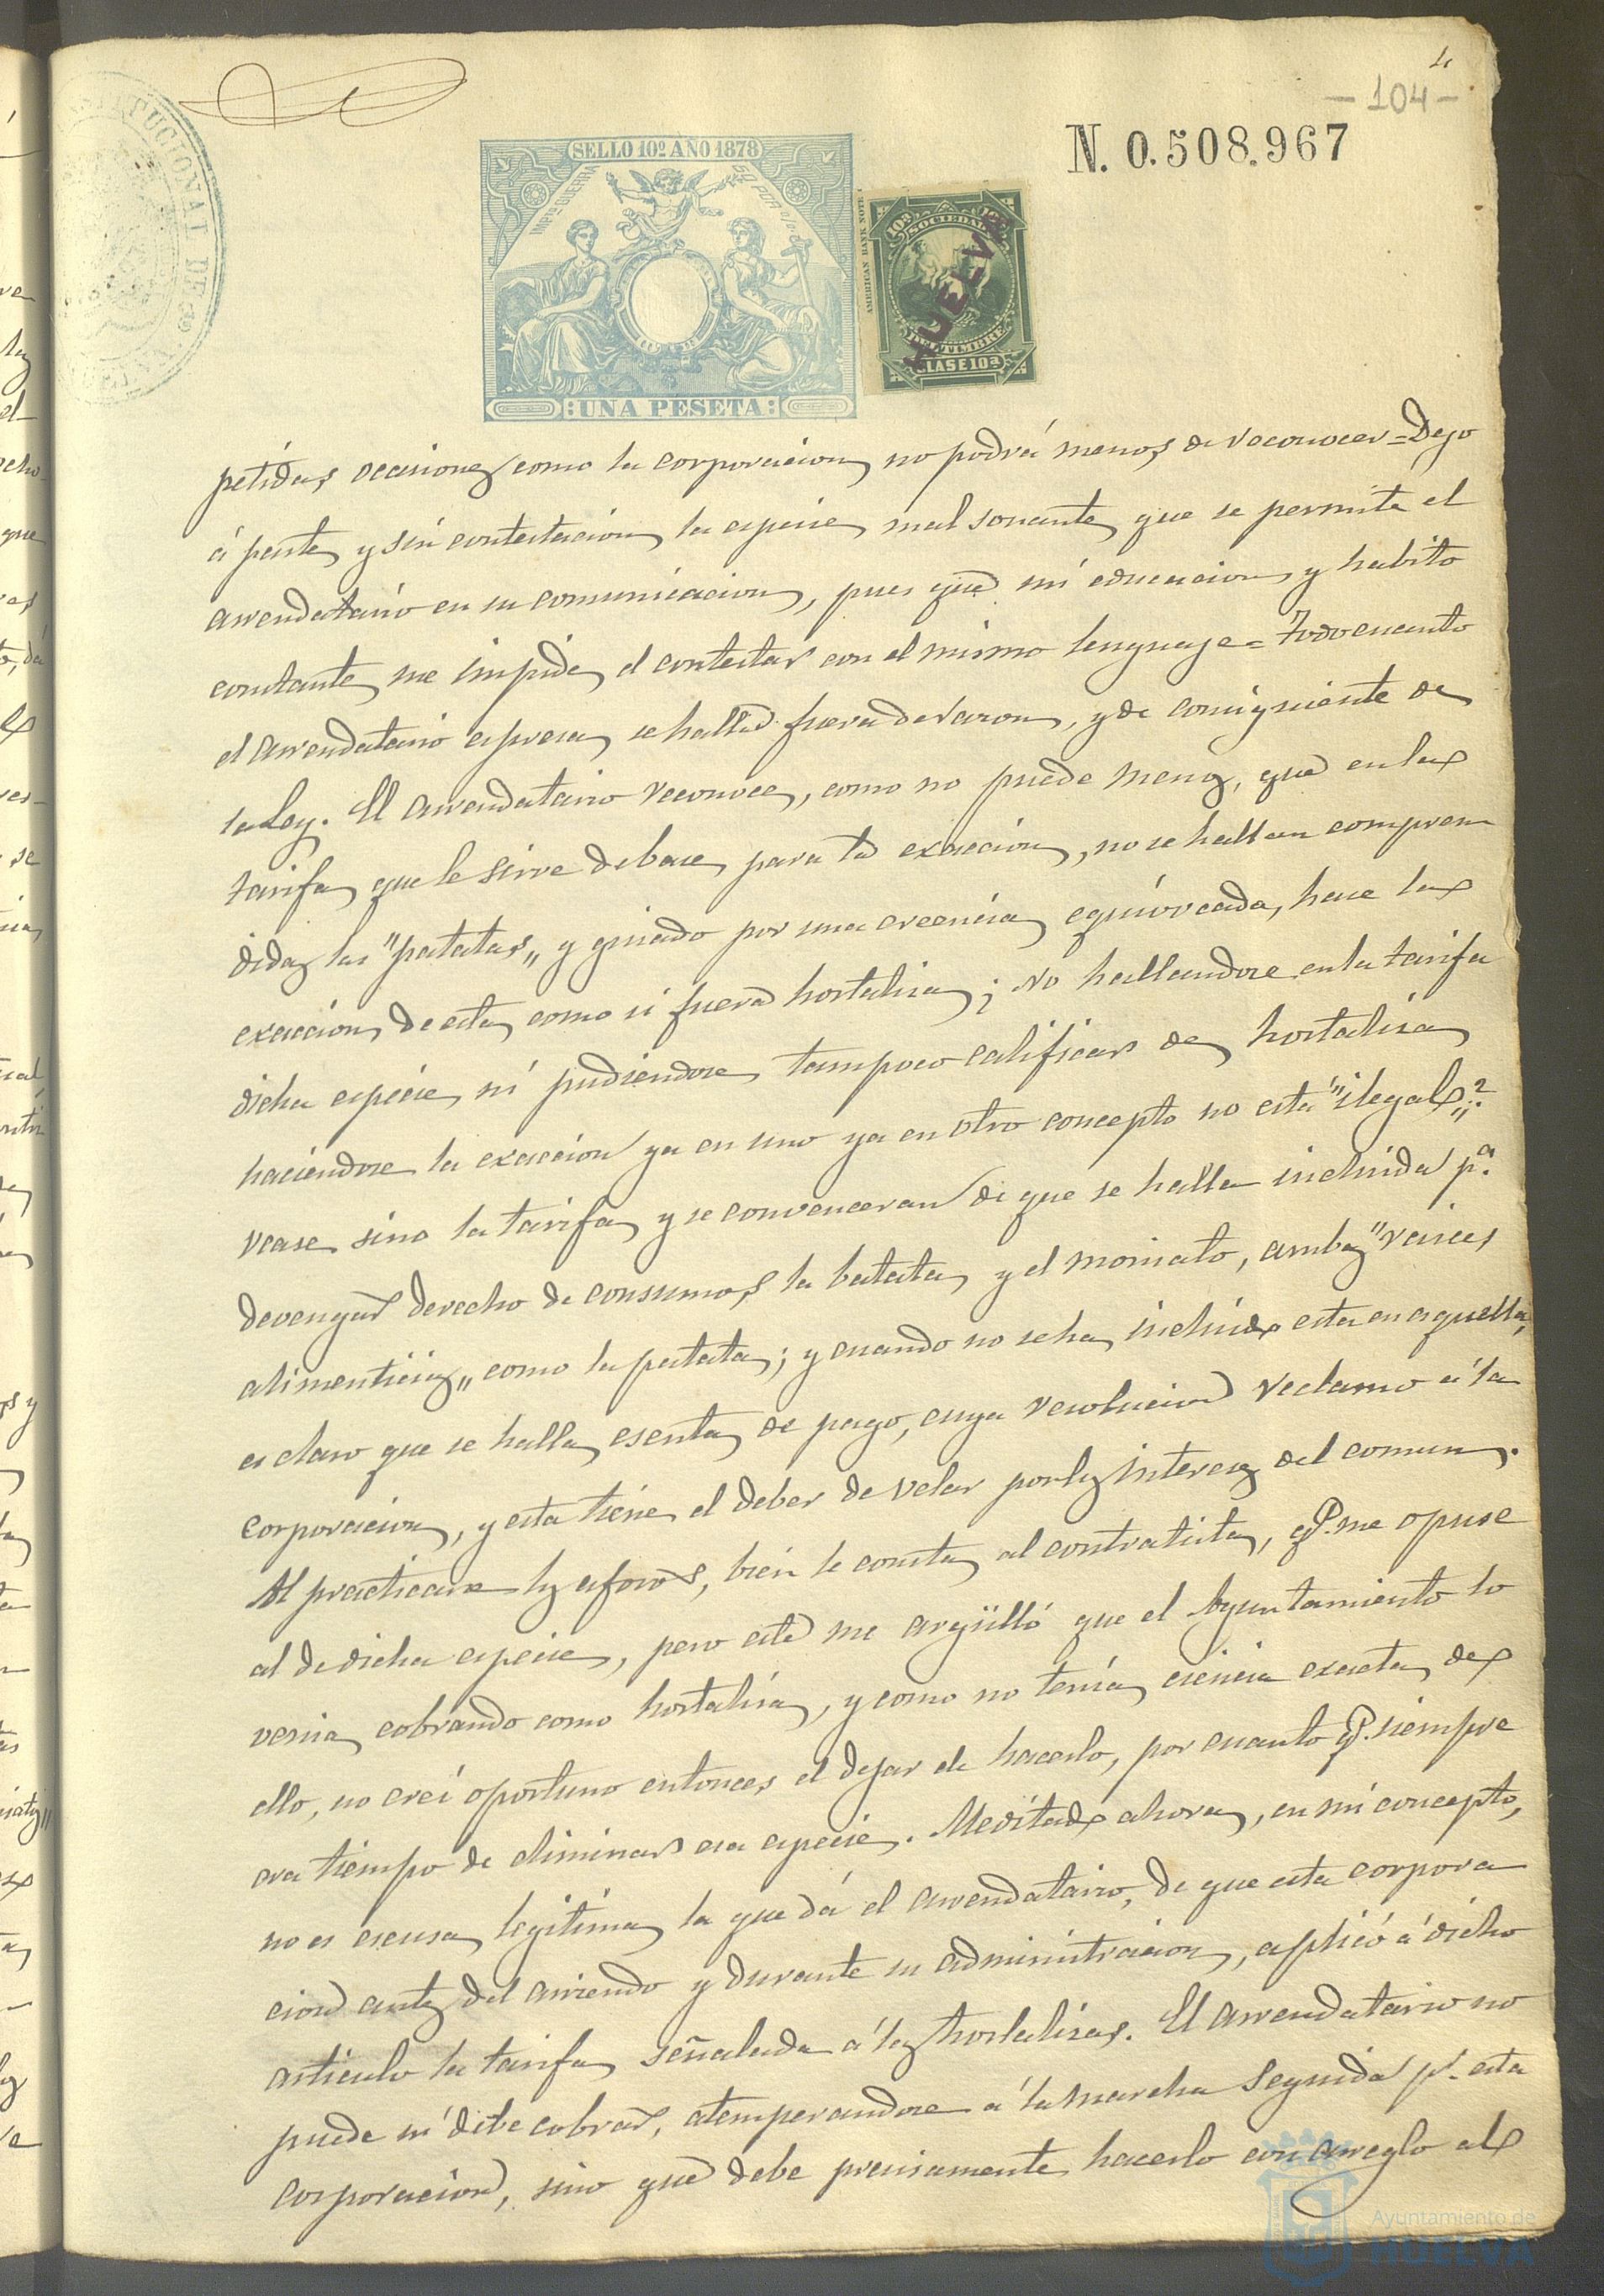 4
- 104 -
N. 0.508.967
SELLO 10º AÑO 1878
IMPtº GUERRA
50 POR 0/0
UNA PESETA
AMERICAN BANK NOTE
10ª 10ª
SOCIEDAD
DEL TIMBRE
CLASE 10ª
HUELVA
TUCIONAL DE
petidas ocasiones como la corporacion no podrá menos de reconocer = Dejo
á parte y sin contestacion la especie mal sonante que se permite el
arrendatario en su comunicacion, pues que mi educacion y habito
constante me impide el contestar con el mismo lenguaje = Todo cuanto
el arrendatario espresa se halla fuera de razon, y de consiguiente de
la Ley. El arrendatario reconoce, como no puede menos, que en la
tarifa que le sirve de base para la exaccion, no se hallan compren
didas las "patatas" y guiado por una creencia equivocada, hace la
exaccion de esta como si fuera hortalisa; No hallandose en la tarifa
dicha especie ni pudiendose tampoco calificar de hortalisa
haciendose la exaccion ya en uno ya en otro concepto no está "ilegal"?
vease sino la tarifa y se convenceran de que se halla incluida pª.
devengar derecho de consumos la batata y el moniato, ambas "raices
alimenticias" como la patata; y cuando no se ha incluido esta en aquella,
es claro que se halla esenta de pago, cuya resolucion reclamo á la
corporacion, y esta tiene el deber de velar por los intereses del comun.
Al practicarse los aforos, bien le consta al contratista, qe. me opuse
al de dicha especie, pero este me argülló que el Ayuntamiento lo
venia cobrando como hortalisa, y como no tenía ciencia exacta de
ello, no creí oportuno entonces el dejar de hacerlo, por cuanto qe. siempre
era tiempo de eliminar esa especie. Meditado ahora, en mi concepto,
no es escusa legitima la que dá el arrendatario, de que esta corpora
cion antes del arriendo y durante su administracion, aplicó á dicho
articulo la tarifa señalada á las hortalisas. El arrendatario no
puede ni debe cobrar, atemperandose á la marcha seguida pr. esta
corporacion, sino que debe precisamente hacerlo con arreglo al
Ayuntamiento de
HUELVA